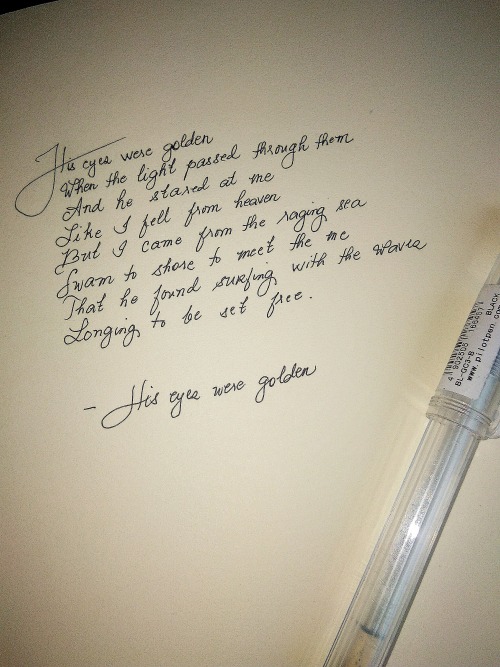 His eyes were golden
When the light passed through them
And he stared at me
Like I fell from heaven
But I came from the raging sea
Swam to shore to meet the me
That he found surfing with the waves
Longing to be set free.
- His eyes were golden
BLACK
BL-GC3-B
www.pilotpen.com